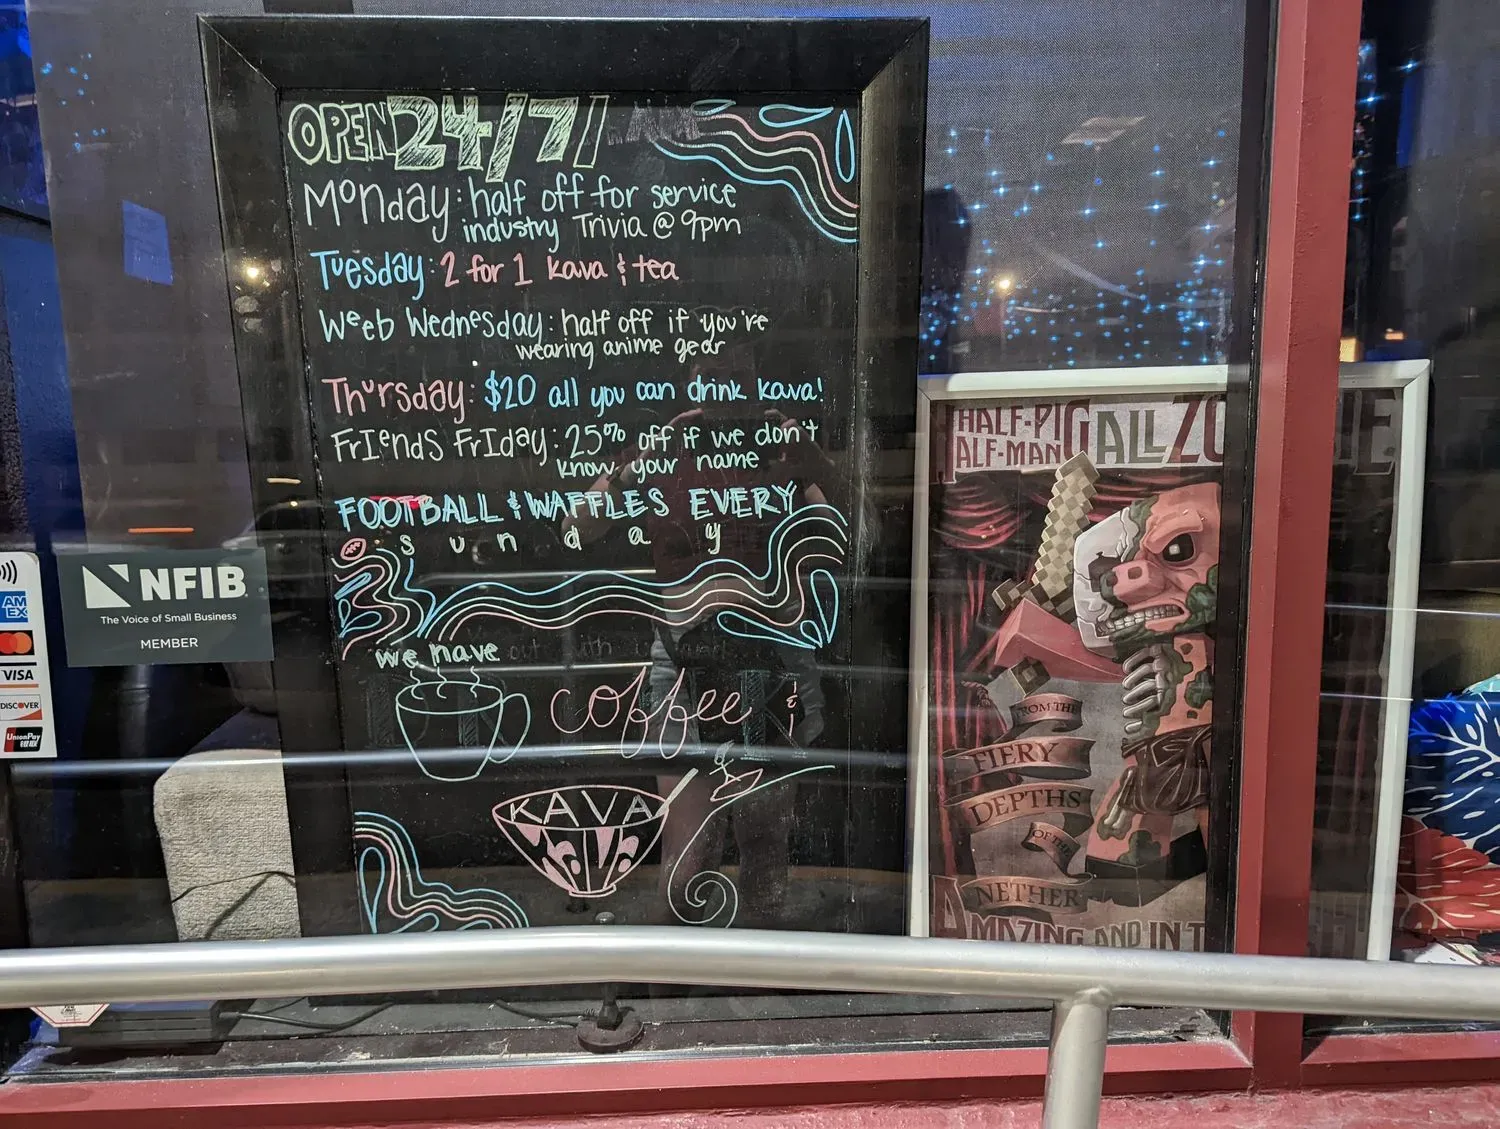 OPEN 24/7/
Monday: half off for service
industry Trivia @ 9pm
Tuesday: 2 for 1 kava & tea
Weeb Wednesday: half off if you're
wearing anime gear
Thursday: $20 all you can drink kava!
Friends Friday: 25% off if we don't
know your name
FOOTBALL & WAFFLES EVERY
sunday
we have
coffee &
KAVA
NFIB
The Voice of Small Business
MEMBER
AM
EX
VISA
DISCOVER
UnionPay
HALF-PIG
HALF-MAN
ALL
FROM THE
FIERY
DEPTHS
OF THE
NETHER
AMAZING AND IN T